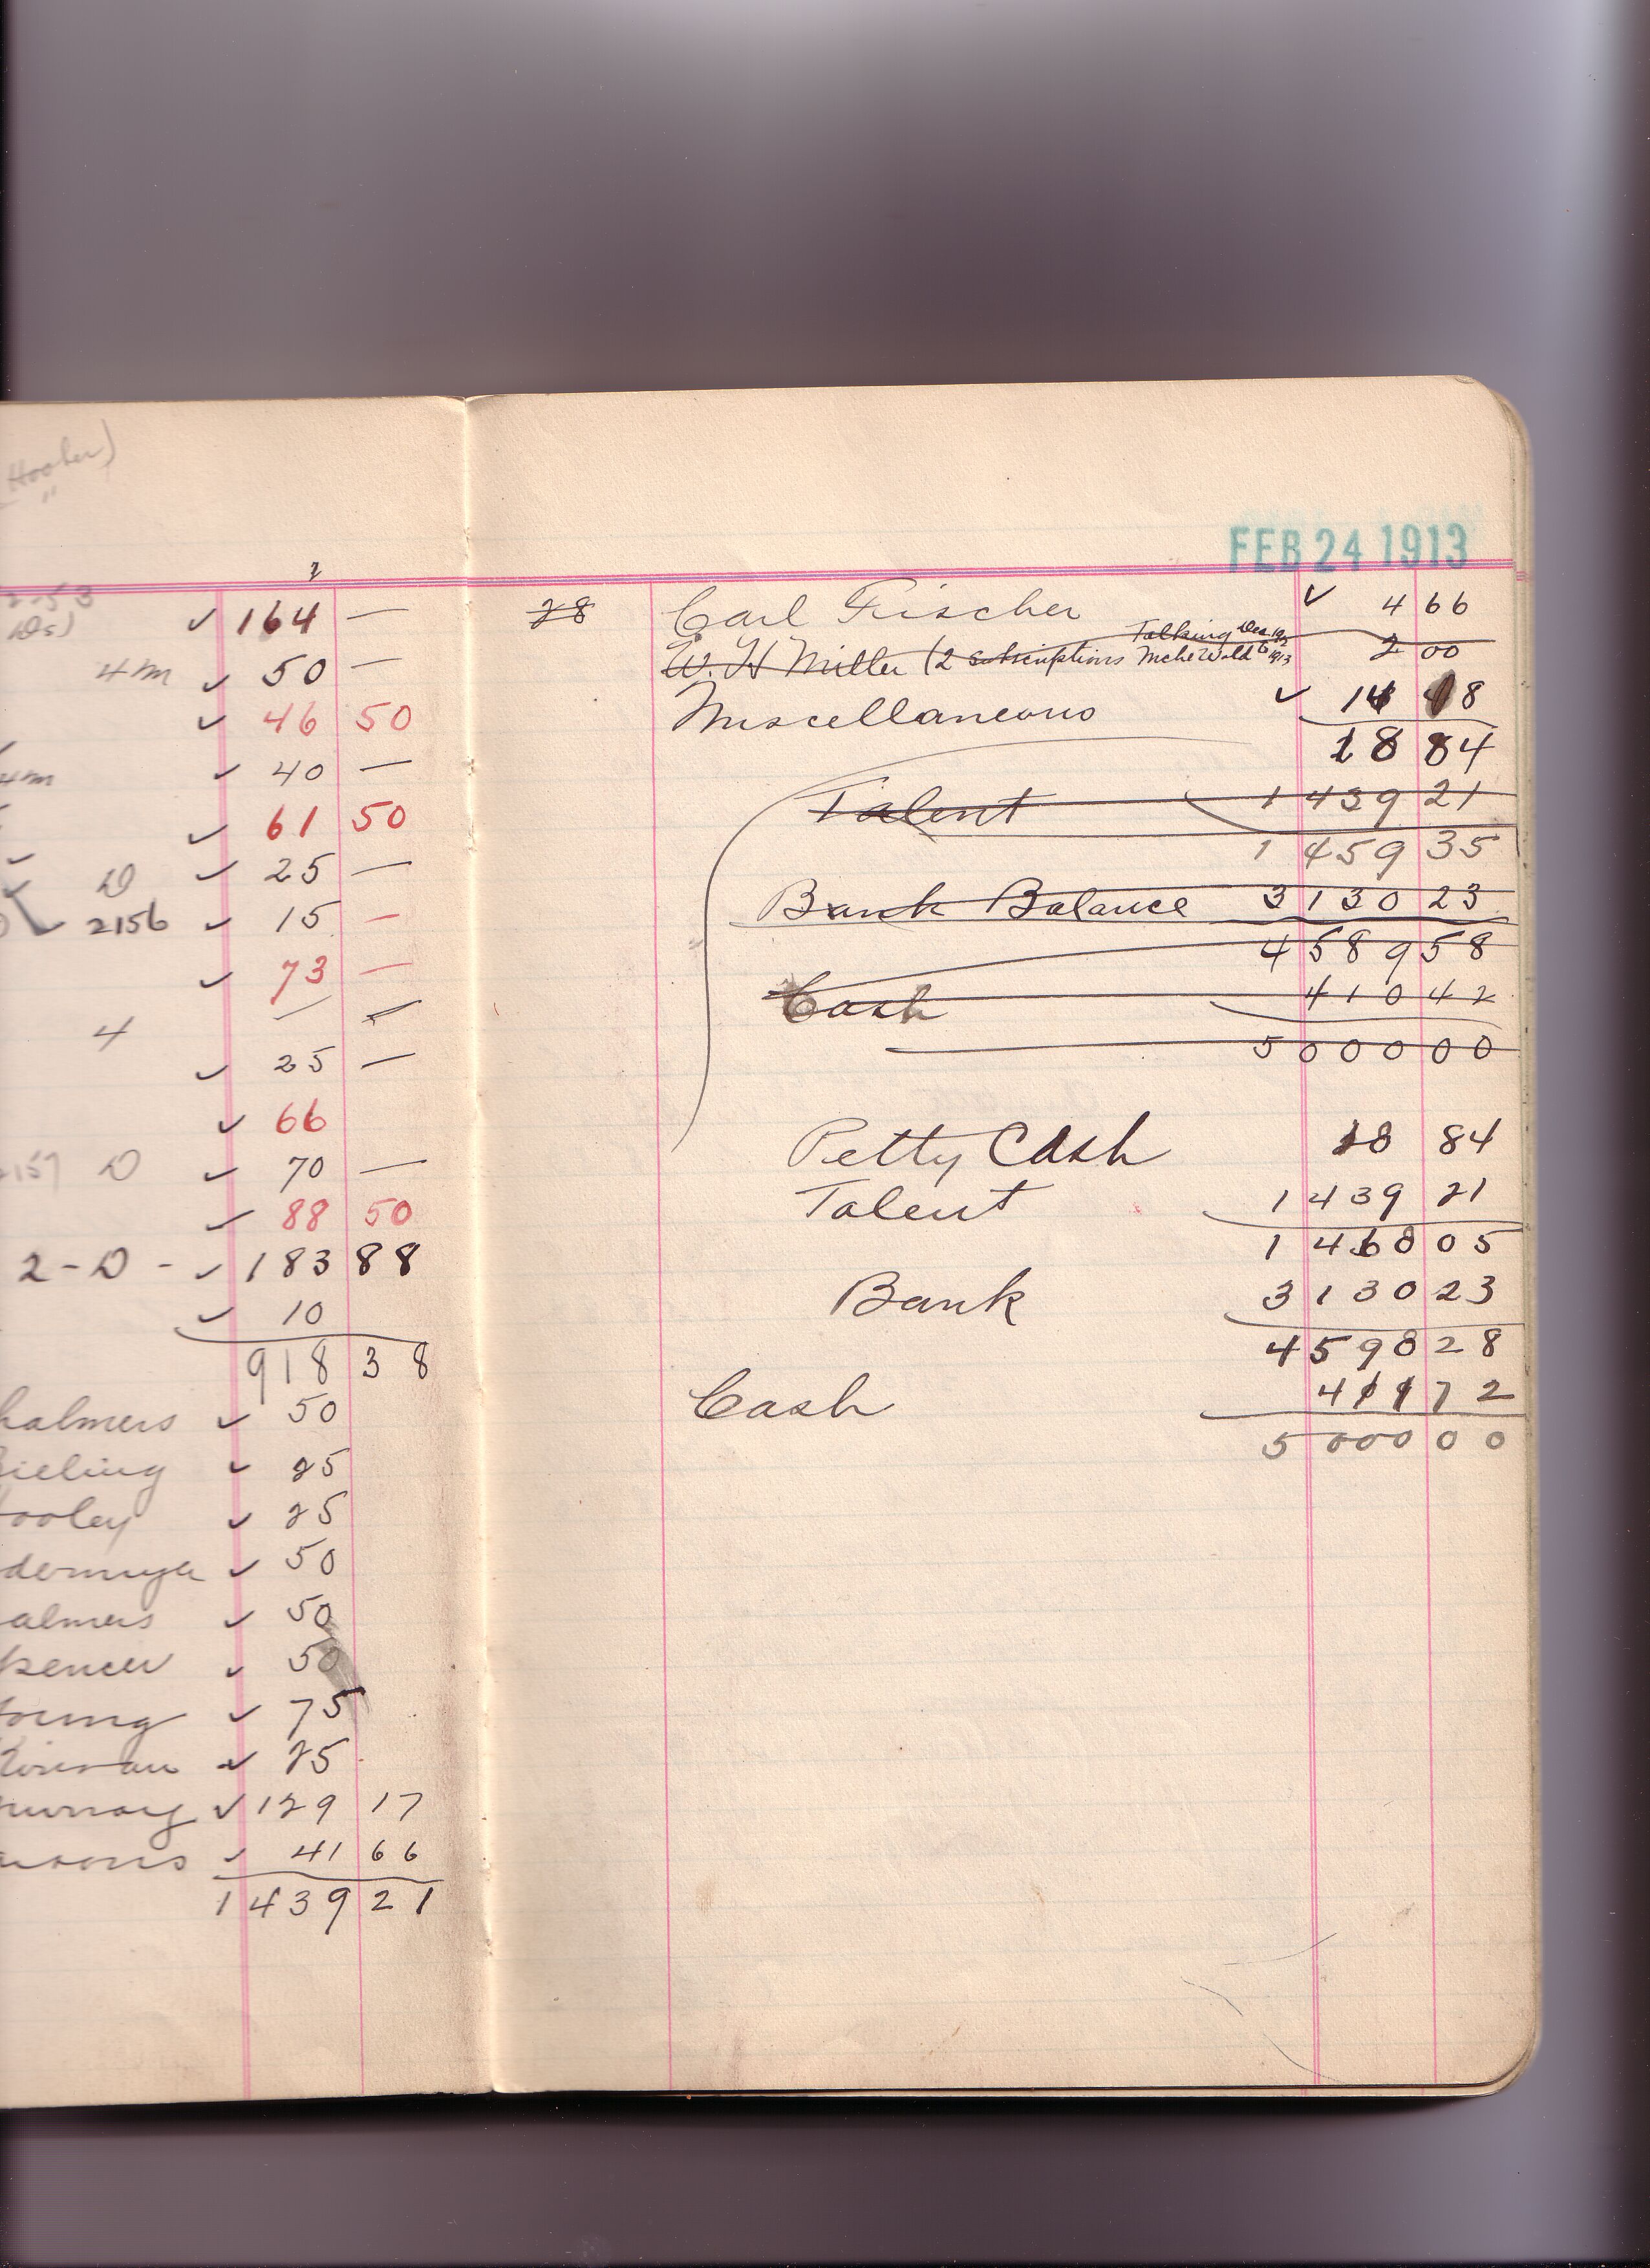 Hooker)
"
2
✓ 164 —
4m ✓ 50 —
✓ 46 50
4m ✓ 40 —
✓ 61 50
D ✓ 25 —
2156 ✓ 15 —
✓ 73 —
4 — —
✓ 25 —
✓ 66
2157 D ✓ 70 —
✓ 88 50
2 - D - ✓ 183 88
✓ 10
918 38
halmers ✓ 50
ieling ✓ 25
ooley ✓ 25
✓ 50
almers ✓ 50
pencer ✓ 50
oung ✓ 75
✓ 25
urray ✓ 129 17
✓ 41 66
1 439 21
FEB 24 1913
28 Carl Fischer ✓ 4 66
W. H Miller (2 subscriptions Talking Mche World Dec 1912 to 1913 2 00
Miscellaneous ✓ 14 18
18 84
Talent 1 439 21
1 459 35
Bank Balance 3 130 23
4 589 58
Cash 410 42
5 000 00
Petty Cash 18 84
Talent 1 439 21
1 458 05
Bank 3 130 23
4 598 28
Cash 411 72
5 000 00